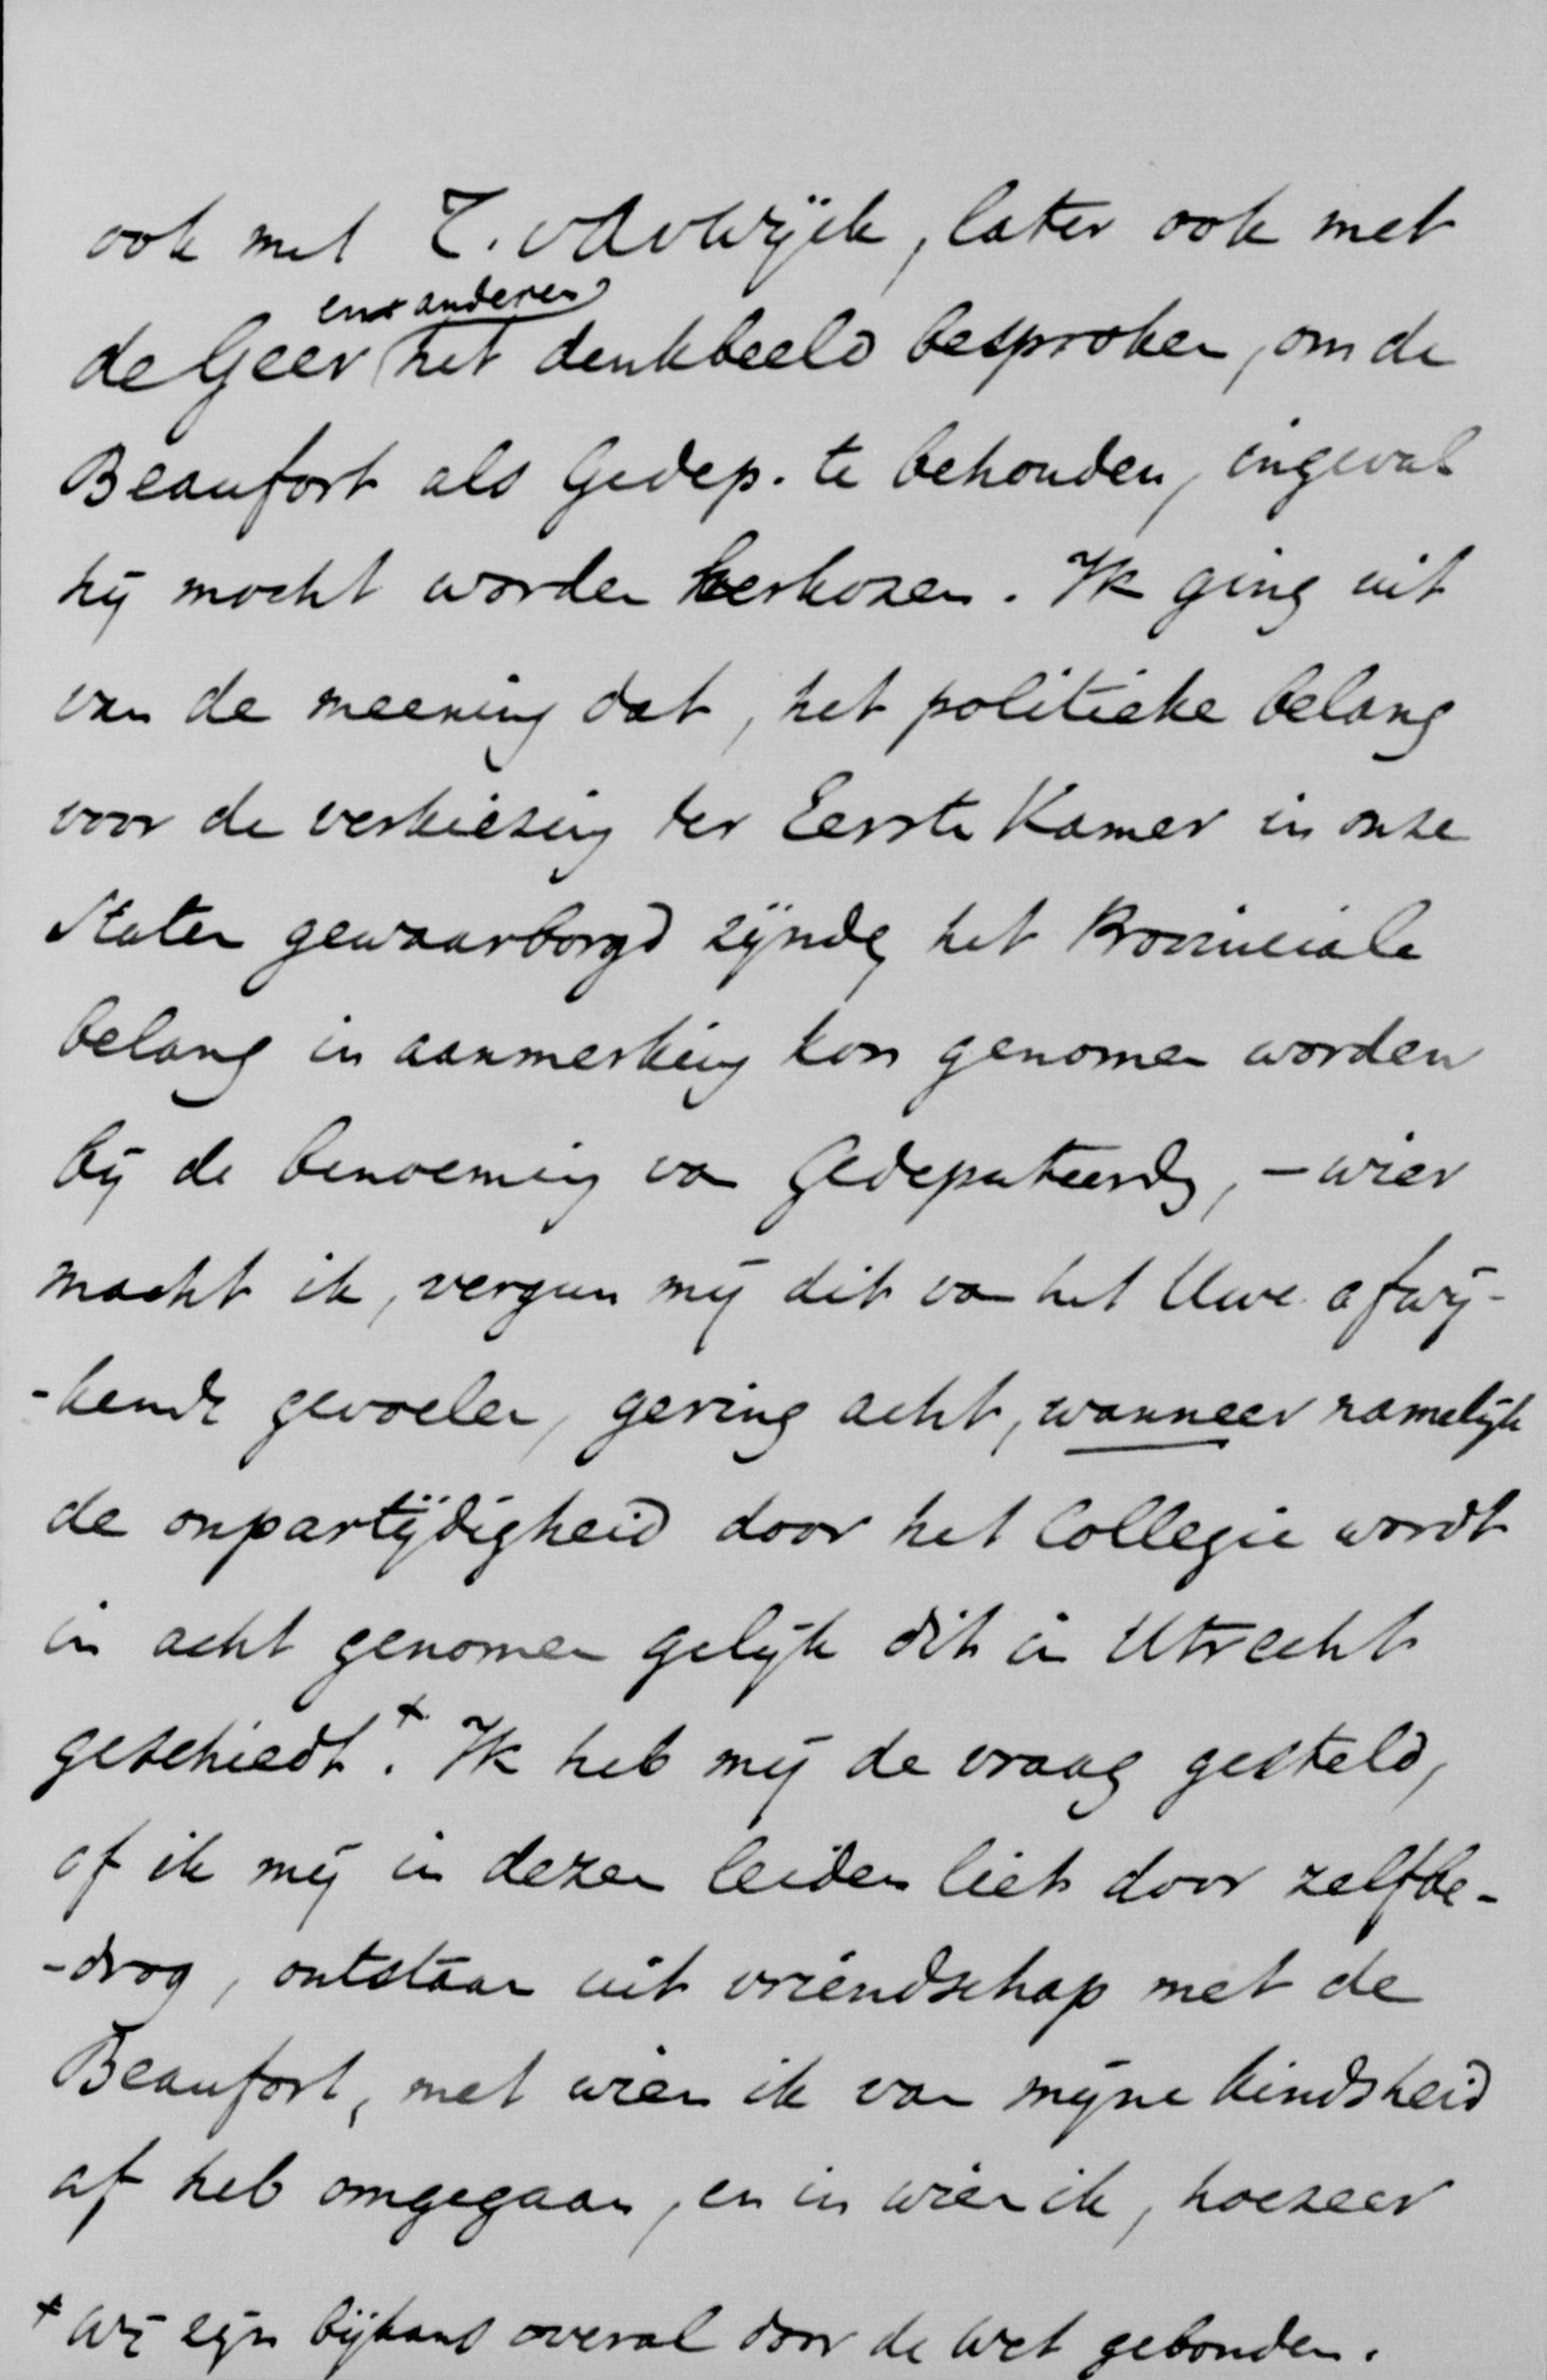 ook met T. vdvWijck, later ook met
en anderen
de Geer het denkbeeld besproken, om de
Beaufort als Gedep. te behouden, ingeval
hij mocht worden herkozen. Ik ging uit
van de meening dat, het politieke belang
voor de verkiezing ter Eerste Kamer in onze
Staten gewaarborgd zijnde, het Provinciale
belang in aanmerking kon genomen worden
bij de benoeming van Gedeputeerde, – wier
macht ik, vergun mij dit van het Uwe afwij-
-kende gevoelen, gering acht, wanneer namelijk
de onpartijdigheid door het Collegie wordt
in acht genomen gelijk dit in Utrecht
geschiedt +. Ik heb mij de vraag gesteld,
of ik mij in dezen leiden liet door zelfbe-
-drog, ontstaan uit vriendschap met de
Beaufort, met wien ik van mijne kindsheid
af heb omgegaan, en in wien ik, hoezeer
+ Wij zijn bijkans overal door de wet gebonden.